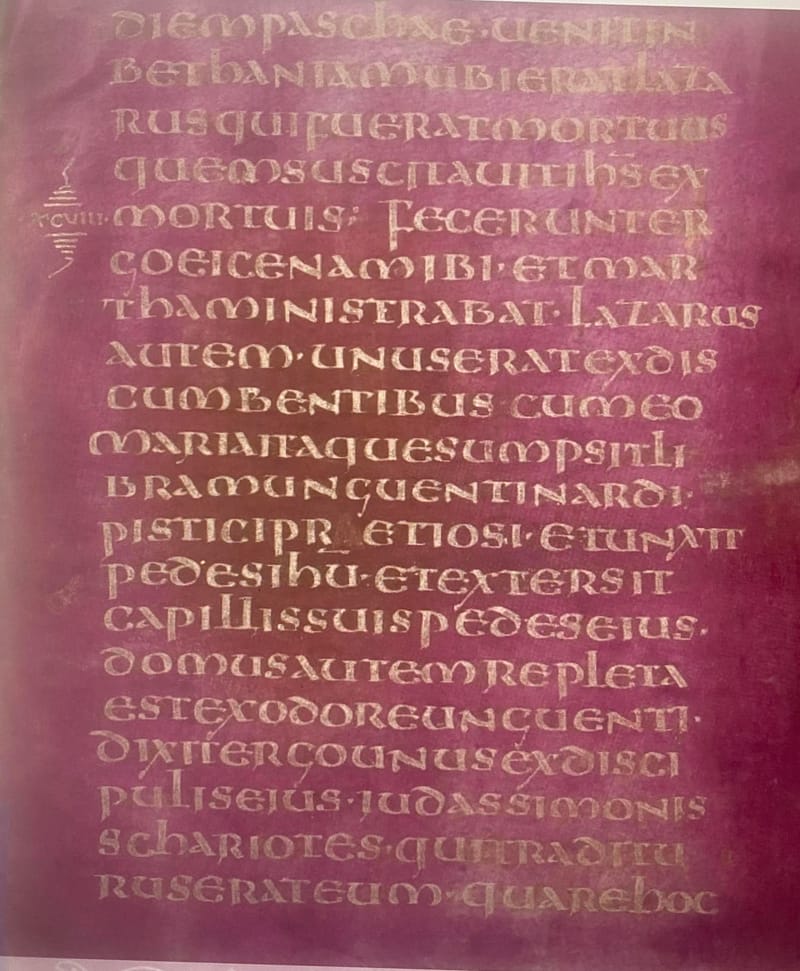 DIEMPASCHAE·UENITIN
BETHANIAMUBIERATLAZA
RUSQUIFUERATMORTUUS
QUEMSUSCITAUITIHSEX
XCVIII·MORTUIS: FECERUNTER
GOEICENAMIBI·ETMAR
THAMINISTRABAT·LAZARUS
AUTEM·UNUSERATEXDIS
CUMBENTIBUS CUMEO
MARIAITAQUESUMPSITLI
BRAMUNGUENTINARDI·
PISTICIPR ETIOSI·ETUNXIT
PEDESIHU·ETEXTERSIT
CAPILLISSUISPEDESEIUS·
DOMUSAUTEMREPLETA
ESTEXODOREUNGUENTI·
DIXITERGOUNUSEXDISCI
PULISEIUS·IUDASSIMONIS
SCHARIOTES·QUITRADITU
RUSERATEUM·QUAREHOC